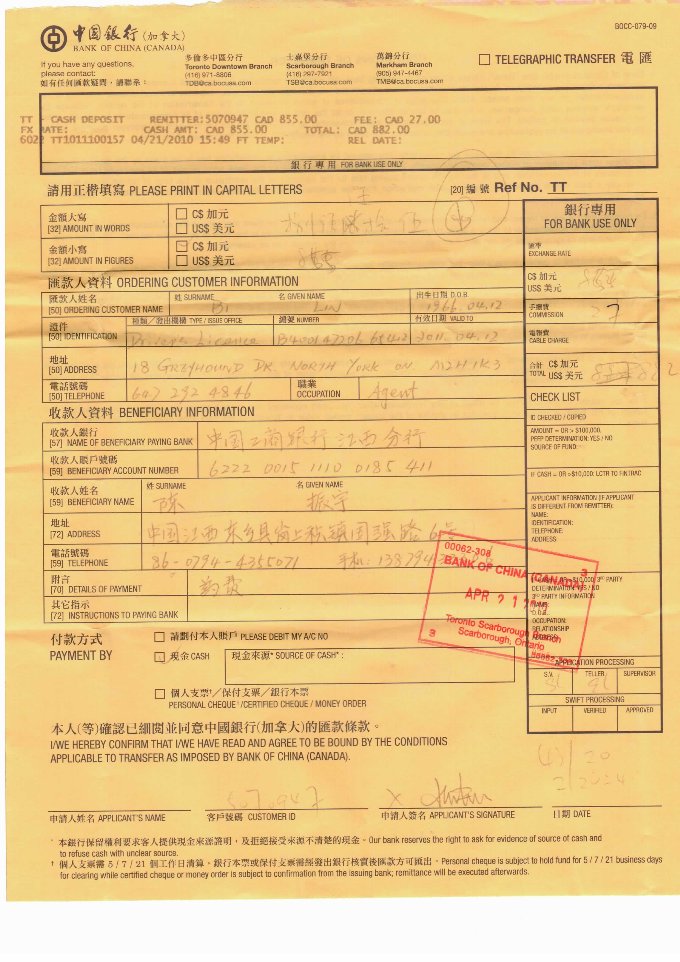 BOCC-079-09
中國銀行(加拿大)
BANK OF CHINA (CANADA)
If you have any questions,
please contact:
如有任何匯款疑問,請聯系:
多倫多中區分行
Toronto Downtown Branch
(416) 971-8806
TDB@ca.bocusa.com
士嘉堡分行
Scarborough Branch
(416) 297-7921
TSB@ca.bocusa.com
萬錦分行
Markham Branch
(905) 947-4467
TMB@ca.bocusa.com
TELEGRAPHIC TRANSFER 電匯
TT - CASH DEPOSIT REMITTER:5070947 CAD 855.00 FEE: CAD 27.00
FX RATE: CASH AMT: CAD 855.00 TOTAL: CAD 882.00
6022 TT1011100157 04/21/2010 15:49 FT TEMP: REL DATE:
銀行專用 FOR BANK USE ONLY
請用正楷填寫 PLEASE PRINT IN CAPITAL LETTERS
[20] 編號 Ref No. TT
金額大寫
[32] AMOUNT IN WORDS
C$ 加元
US$ 美元
金額小寫
[32] AMOUNT IN FIGURES
C$ 加元
US$ 美元
匯款人資料 ORDERING CUSTOMER INFORMATION
匯款人姓名
[50] ORDERING CUSTOMER NAME
姓 SURNAME
BI
名 GIVEN NAME
LIN
出生日期 D.O.B.
1966.04.12
證件
[50] IDENTIFICATION
種類/發出機構 TYPE / ISSUE OFFICE
Drivers Licence
編號 NUMBER
有效日期 VALID TO
2011.04.12
地址
[50] ADDRESS
18 GREYHOUND DR. NORTH YORK ON M2H 1K3
電話號碼
[50] TELEPHONE
647 292 4846
職業
OCCUPATION
Agent
收款人資料 BENEFICIARY INFORMATION
收款人銀行
[57] NAME OF BENEFICIARY PAYING BANK
中国工商银行 江西分行
收款人賬戶號碼
[59] BENEFICIARY ACCOUNT NUMBER
6222 0015 1110 0185 411
收款人姓名
[59] BENEFICIARY NAME
姓 SURNAME
陈
名 GIVEN NAME
振宇
地址
[72] ADDRESS
中国江西东乡县
電話號碼
[59] TELEPHONE
86-0794-4355071 手机: 138794
附言
[70] DETAILS OF PAYMENT
其它指示
[72] INSTRUCTIONS TO PAYING BANK
付款方式
PAYMENT BY
請劃付本人賬戶 PLEASE DEBIT MY A/C NO
現金 CASH
現金來源* SOURCE OF CASH* :
個人支票†/保付支票/銀行本票
PERSONAL CHEQUE†/CERTIFIED CHEQUE / MONEY ORDER
銀行專用
FOR BANK USE ONLY
匯率
EXCHANGE RATE
C$ 加元
US$ 美元
手續費
COMMISSION
27
電報費
CABLE CHARGE
合計
TOTAL
C$ 加元
US$ 美元
CHECK LIST
ID CHECKED / COPIED
AMOUNT = OR > $100,000,
PEFP DETERMINATION: YES / NO
SOURCE OF FUND:
IF CASH = OR >$10,000: LCTR TO FINTRAC
APPLICANT INFORMATION (IF APPLICANT
IS DIFFERENT FROM REMITTER):
NAME:
IDENTIFICATION:
TELEPHONE:
ADDRESS
3RD PARTY
DETERMINATION: YES / NO
3RD PARTY INFORMATION
NAME:
D.O.B.
OCCUPATION:
RELATIONSHIP
00062-308
BANK OF CHINA (CANADA)
APR 21
Toronto Scarborough Branch
Scarborough, Ontario
3
3
APPLICATION PROCESSING
S.V. TELLER SUPERVISOR
SWIFT PROCESSING
INPUT VERIFIED APPROVED
本人(等)確認已細閱並同意中國銀行(加拿大)的匯款條款。
I/WE HEREBY CONFIRM THAT I/WE HAVE READ AND AGREE TO BE BOUND BY THE CONDITIONS
APPLICABLE TO TRANSFER AS IMPOSED BY BANK OF CHINA (CANADA).
5070947
申請人姓名 APPLICANT'S NAME
客戶號碼 CUSTOMER ID
申請人簽名 APPLICANT'S SIGNATURE
日期 DATE
* 本銀行保留權利要求客人提供現金來源證明,及拒絕接受來源不清楚的現金。Our bank reserves the right to ask for evidence of source of cash and
to refuse cash with unclear source.
† 個人支票需 5 / 7 / 21 個工作日清算。銀行本票或保付支票需經發出銀行核實後匯款方可匯出。Personal cheque is subject to hold fund for 5 / 7 / 21 business days
for clearing while certified cheque or money order is subject to confirmation from the issuing bank; remittance will be executed afterwards.